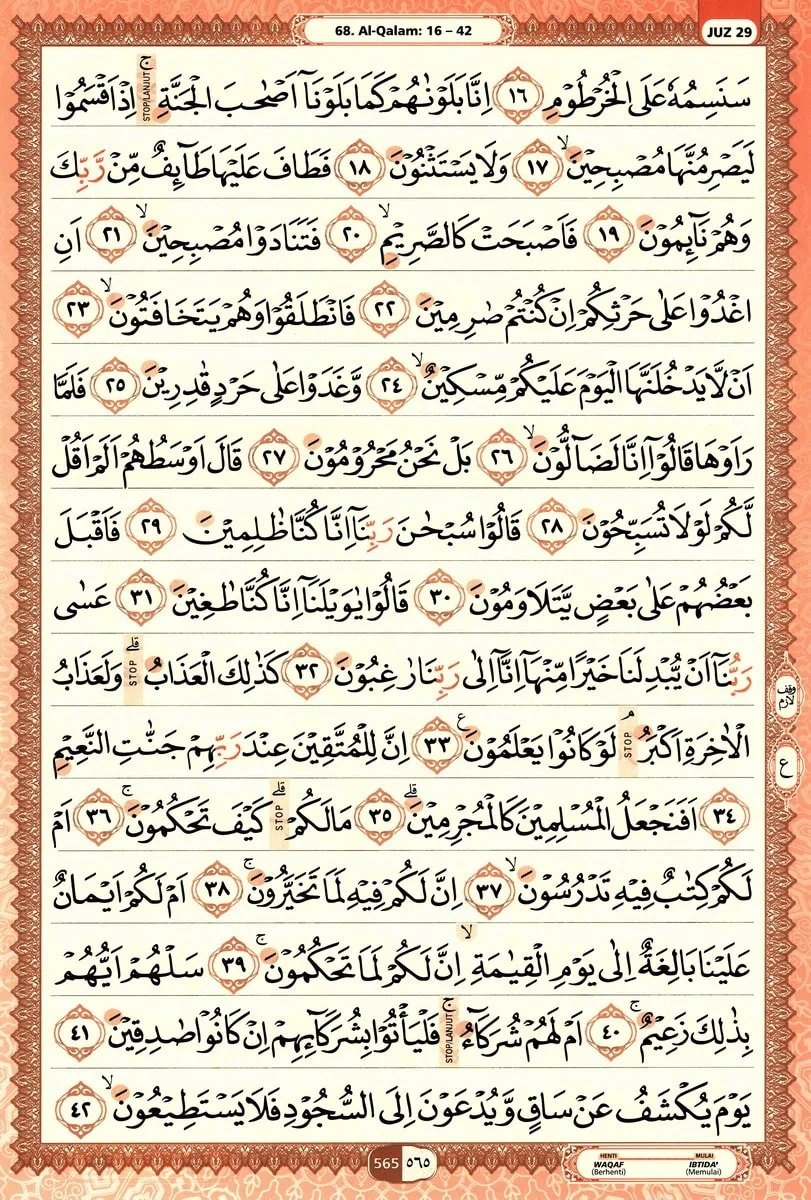 68. Al-Qalam: 16 – 42
JUZ 29
سَنَسِمُهٗ عَلَى الْخُرْطُوْمِ ١٦ اِنَّا بَلَوْنٰهُمْ كَمَا بَلَوْنَآ اَصْحٰبَ الْجَنَّةِۚ STOP/LANJUT اِذْ اَقْسَمُوْا
لَيَصْرِمُنَّهَا مُصْبِحِيْنَۙ ١٧ وَلَا يَسْتَثْنُوْنَ ١٨ فَطَافَ عَلَيْهَا طَآئِفٌ مِّنْ رَّبِّكَ
وَهُمْ نَآئِمُوْنَ ١٩ فَاَصْبَحَتْ كَالصَّرِيْمِۙ ٢٠ فَتَنَادَوْا مُصْبِحِيْنَۙ ٢١ اَنِ
اغْدُوْا عَلٰى حَرْثِكُمْ اِنْ كُنْتُمْ صٰرِمِيْنَ ٢٢ فَانْطَلَقُوْا وَهُمْ يَتَخَافَتُوْنَۙ ٢٣
اَنْ لَّا يَدْخُلَنَّهَا الْيَوْمَ عَلَيْكُمْ مِّسْكِيْنٌۙ ٢٤ وَّغَدَوْا عَلٰى حَرْدٍ قٰدِرِيْنَ ٢٥ فَلَمَّا
رَاَوْهَا قَالُوْٓا اِنَّا لَضَآلُّوْنَۙ ٢٦ بَلْ نَحْنُ مَحْرُوْمُوْنَ ٢٧ قَالَ اَوْسَطُهُمْ اَلَمْ اَقُلْ
لَّكُمْ لَوْلَا تُسَبِّحُوْنَ ٢٨ قَالُوْا سُبْحٰنَ رَبِّنَآ اِنَّا كُنَّا ظٰلِمِيْنَ ٢٩ فَاَقْبَلَ
بَعْضُهُمْ عَلٰى بَعْضٍ يَّتَلَاوَمُوْنَ ٣٠ قَالُوْا يٰوَيْلَنَآ اِنَّا كُنَّا طٰغِيْنَ ٣١ عَسٰى
رَبُّنَآ اَنْ يُّبْدِلَنَا خَيْرًا مِّنْهَآ اِنَّآ اِلٰى رَبِّنَا رٰغِبُوْنَ ٣٢ كَذٰلِكَ الْعَذَابُۗ STOP وَلَعَذَابُ
الْاٰخِرَةِ اَكْبَرُۘ STOP لَوْ كَانُوْا يَعْلَمُوْنَ ࣖ ٣٣ اِنَّ لِلْمُتَّقِيْنَ عِنْدَ رَبِّهِمْ جَنّٰتِ النَّعِيْمِ
وقف لازم
٣٤ اَفَنَجْعَلُ الْمُسْلِمِيْنَ كَالْمُجْرِمِيْنَۗ ٣٥ مَا لَكُمْۗ STOP كَيْفَ تَحْكُمُوْنَۚ ٣٦ اَمْ
ع
لَكُمْ كِتٰبٌ فِيْهِ تَدْرُسُوْنَۙ ٣٧ اِنَّ لَكُمْ فِيْهِ لَمَا تَخَيَّرُوْنَۚ ٣٨ اَمْ لَكُمْ اَيْمَانٌ
عَلَيْنَا بَالِغَةٌ اِلٰى يَوْمِ الْقِيٰمَةِۙ اِنَّ لَكُمْ لَمَا تَحْكُمُوْنَۚ ٣٩ سَلْهُمْ اَيُّهُمْ
بِذٰلِكَ زَعِيْمٌۚ ٤٠ اَمْ لَهُمْ شُرَكَآءُۚ STOP/LANJUT فَلْيَأْتُوْا بِشُرَكَآئِهِمْ اِنْ كَانُوْا صٰدِقِيْنَ ٤١
يَوْمَ يُكْشَفُ عَنْ سَاقٍ وَّيُدْعَوْنَ اِلَى السُّجُوْدِ فَلَا يَسْتَطِيْعُوْنَۙ ٤٢
565 ٥٦٥
HENTI MULAI
WAQAF IBTIDA'
(Berhenti) (Memulai)